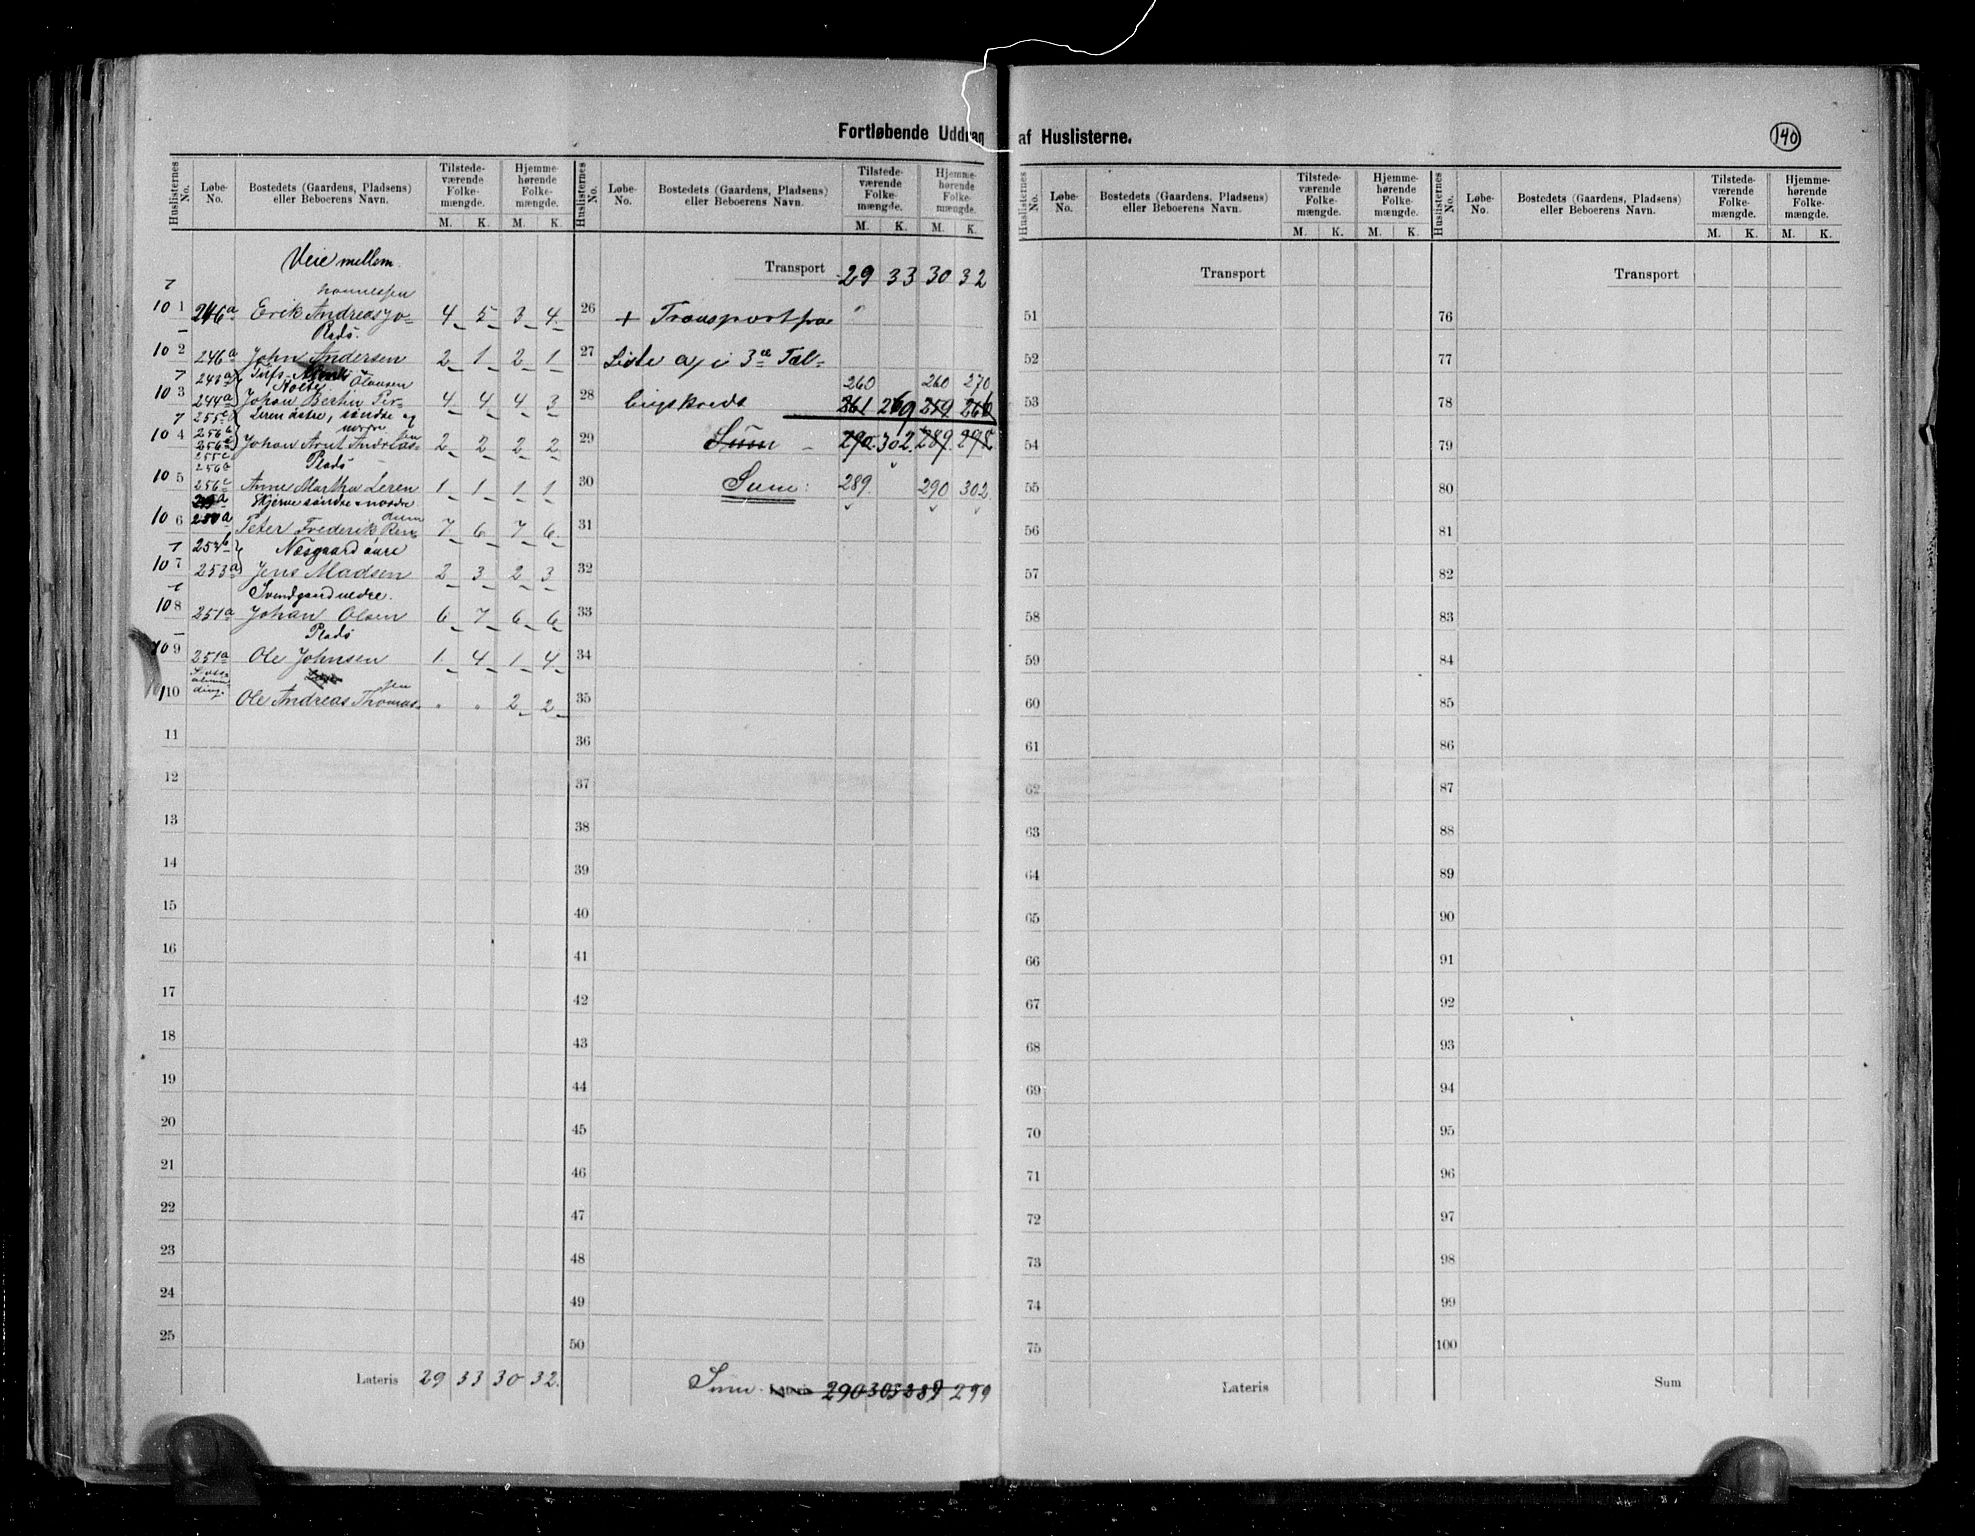 Fortløbende Uddrag af Huslisterne.
140
Huslisternes No. Løbe-No. Bostedets (Gaardens, Pladsens) eller Beboerens Navn. Tilstedeværende Folkemængde. M. K. Hjemmehørende Folkemængde. M. K.
Veie mellem
hannessen
101 246a Erik Andreas Jo- 4 5 3 4
Plads.
102 246a John Andersen 2 1 2 1
243a
Holte Olausen
103 244a Johan Bertin Per- 4 4 4 3
255c Leren østre, søndre og
256b nordre
104 256a Johan Arnt Andreas- 2 2 2 2
sen
255c
256a Plads
105 256c Anne Martha Leren 1 1 1 1
Skjerve søndre & nordre
106 Peter Frederik Ren- 7 6 7 6
dum
254b Næsgaard øvre
107 253a Jens Madsen 2 3 2 3
Svendgaard nedre.
108 251a Johan Olsen 6 7 6 6
Plads
109 251a Ole Johnsen 1 4 1 4
110 Ole Andreas Thomas- " " 2 2
sen
11
12
13
14
15
16
17
18
19
20
21
22
23
24
25
Lateris 29 33 30 32
Huslisternes No. Løbe-No. Bostedets (Gaardens, Pladsens) eller Beboerens Navn. Tilstedeværende Folkemængde. M. K. Hjemmehørende Folkemængde. M. K.
Transport 29 33 30 32
26 + Transport fra
27 Liste a, i 3die Tæl-
260 260 270
28 lingskreds 261 269 259 266
29 Sum 290 302 289 298
30 Sum: 289 290 302
31
32
33
34
35
36
37
38
39
40
41
42
43
44
45
46
47
48
49
50
Sum Lateris 290 303 289 299
Huslisternes No. Løbe-No. Bostedets (Gaardens, Pladsens) eller Beboerens Navn. Tilstedeværende Folkemængde. M. K. Hjemmehørende Folkemængde. M. K.
Transport
51
52
53
54
55
56
57
58
59
60
61
62
63
64
65
66
67
68
69
70
71
72
73
74
75
Lateris
Huslisternes No. Løbe-No. Bostedets (Gaardens, Pladsens) eller Beboerens Navn. Tilstedeværende Folkemængde. M. K. Hjemmehørende Folkemængde. M. K.
Transport
76
77
78
79
80
81
82
83
84
85
86
87
88
89
90
91
92
93
94
95
96
97
98
99
100
Sum